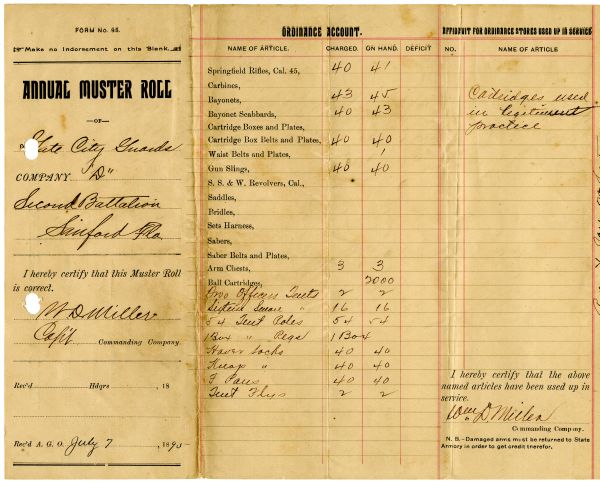 FORM No. 95.
Make no Indorsement on this Blank.
ANNUAL MUSTER ROLL
—OF—
Gate City Guards
COMPANY "D"
Second Battalion
Sanford Fla
I hereby certify that this Muster Roll
is correct.
W D Miller
Capt Commanding Company.
Rec'd Hdqrs , 18
Rec'd A. G. O. July 7 , 189
ORDINANCE ACCOUNT.
NAME OF ARTICLE. CHARGED. ON HAND. DEFICIT
Springfield Rifles, Cal. 45, 40 41
Carbines,
Bayonets, 43 45
Bayonet Scabbards, 40 43
Cartridge Boxes and Plates,
Cartridge Box Belts and Plates, 40 40
Waist Belts and Plates,
Gun Slings, 40 40
S. S. & W. Revolvers, Cal.,
Saddles,
Bridles,
Sets Harness,
Sabers,
Saber Belts and Plates,
Arm Chests, 3 3
Ball Cartridges, 2000
Two Officers Tents 2 2
Sixteen " 16 16
54 Tent Poles 54 54
1 Box " Pegs 1 Box
Haver Sacks 40 40
Knap " 40 40
40 40
Tent Flys 2 2
AFFIDAVIT FOR ORDINANCE STORES USED UP IN SERVICE
NO. NAME OF ARTICLE
Catridges used
in legitiment
practice
I hereby certify that the above
named articles have been used up in
service.
Wm D. Miller
Commanding Company.
N. B.-Damaged arms must be returned to State
Armory in order to get credit therefor.